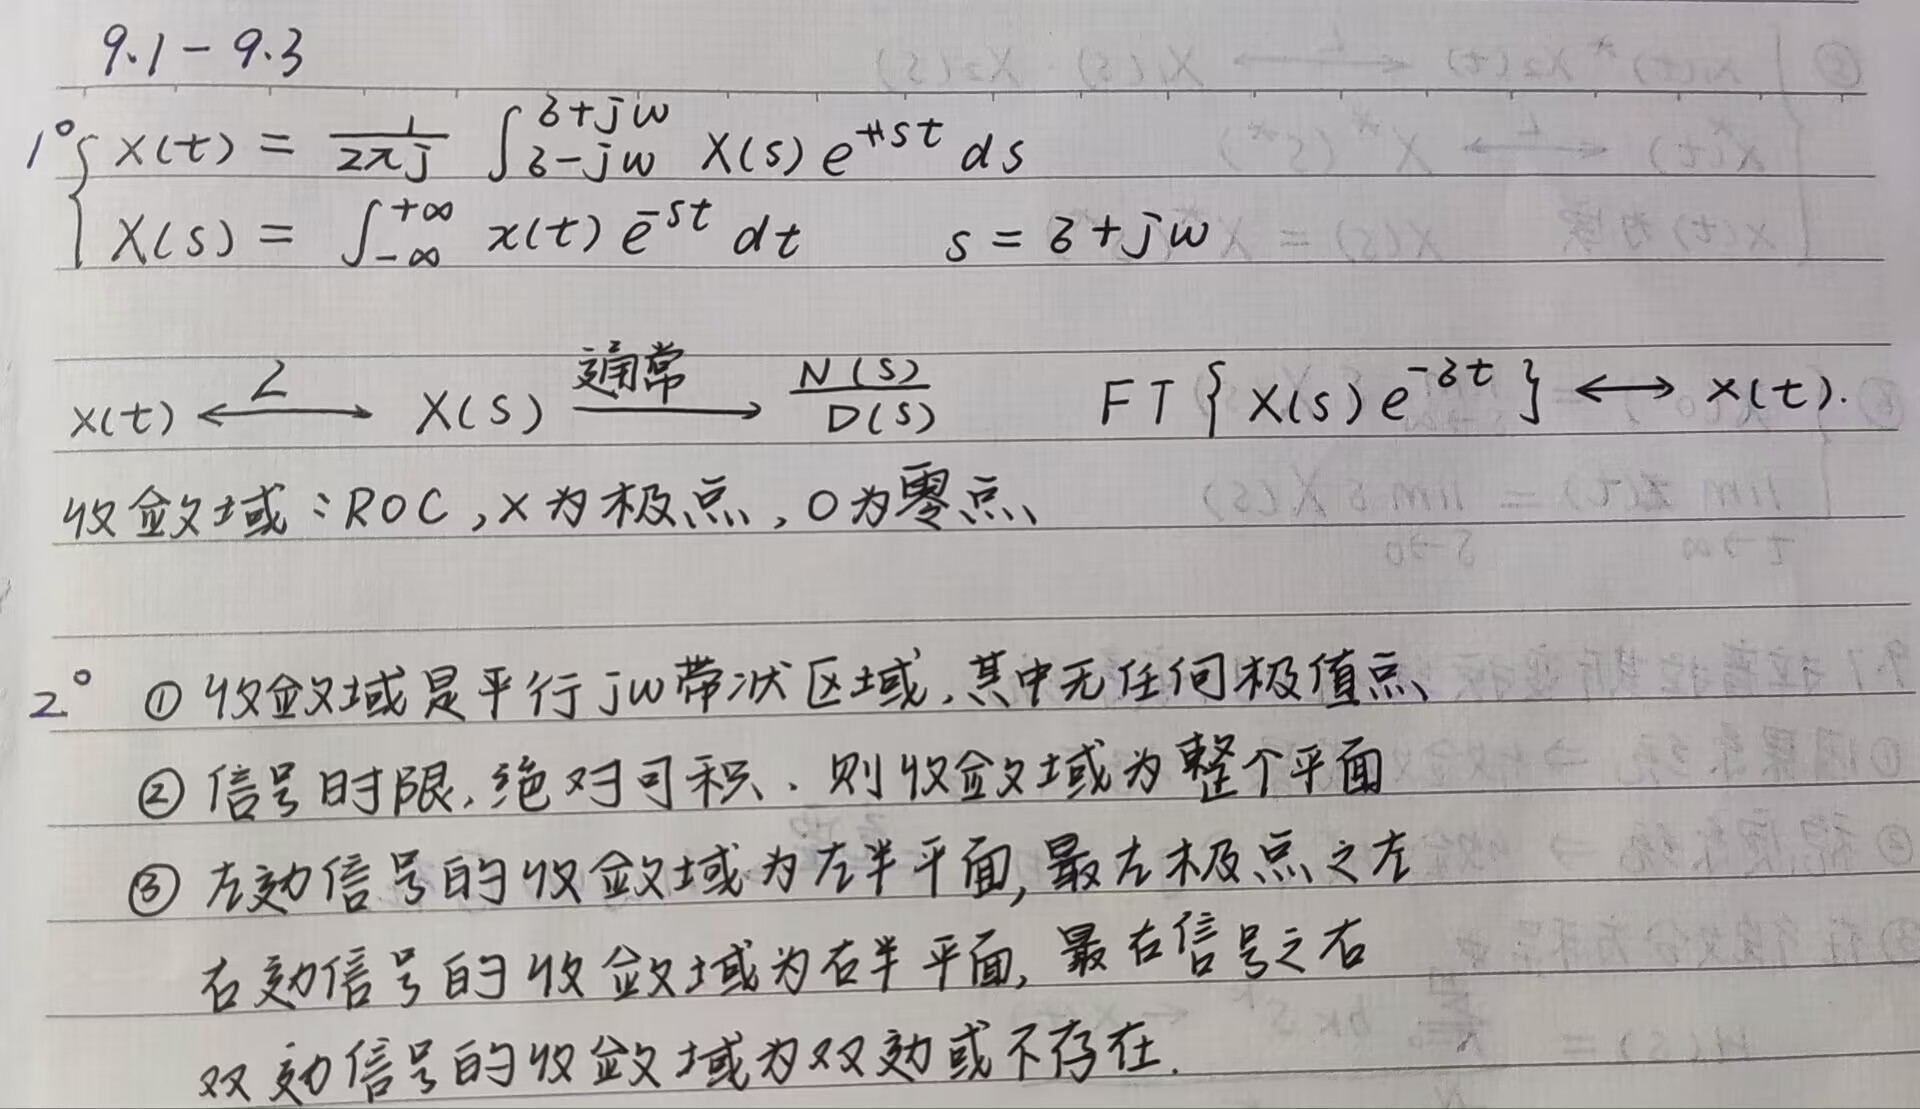 9.1 - 9.3
1° { x(t) = \frac{1}{2πj} ∫_{б-jω}^{б+jω} X(s) e^{+st} ds
X(s) = ∫_{-∞}^{+∞} x(t) e^{-st} dt s = б+jω
x(t) ⟷^{L} X(s) ⟶^{通常} \frac{N(s)}{D(s)} FT{X(s)e^{-бt}} ⟷ x(t).
收敛域：ROC，X为极点，O为零点、
2° ① 收敛域是平行jω带状区域，其中无任何极值点、
② 信号时限，绝对可积．则收敛域为整个平面
③ 左边信号的收敛域为左半平面，最左极点之左
右边信号的收敛域为右半平面，最右信号之右
双边信号的收敛域为双边或不存在．